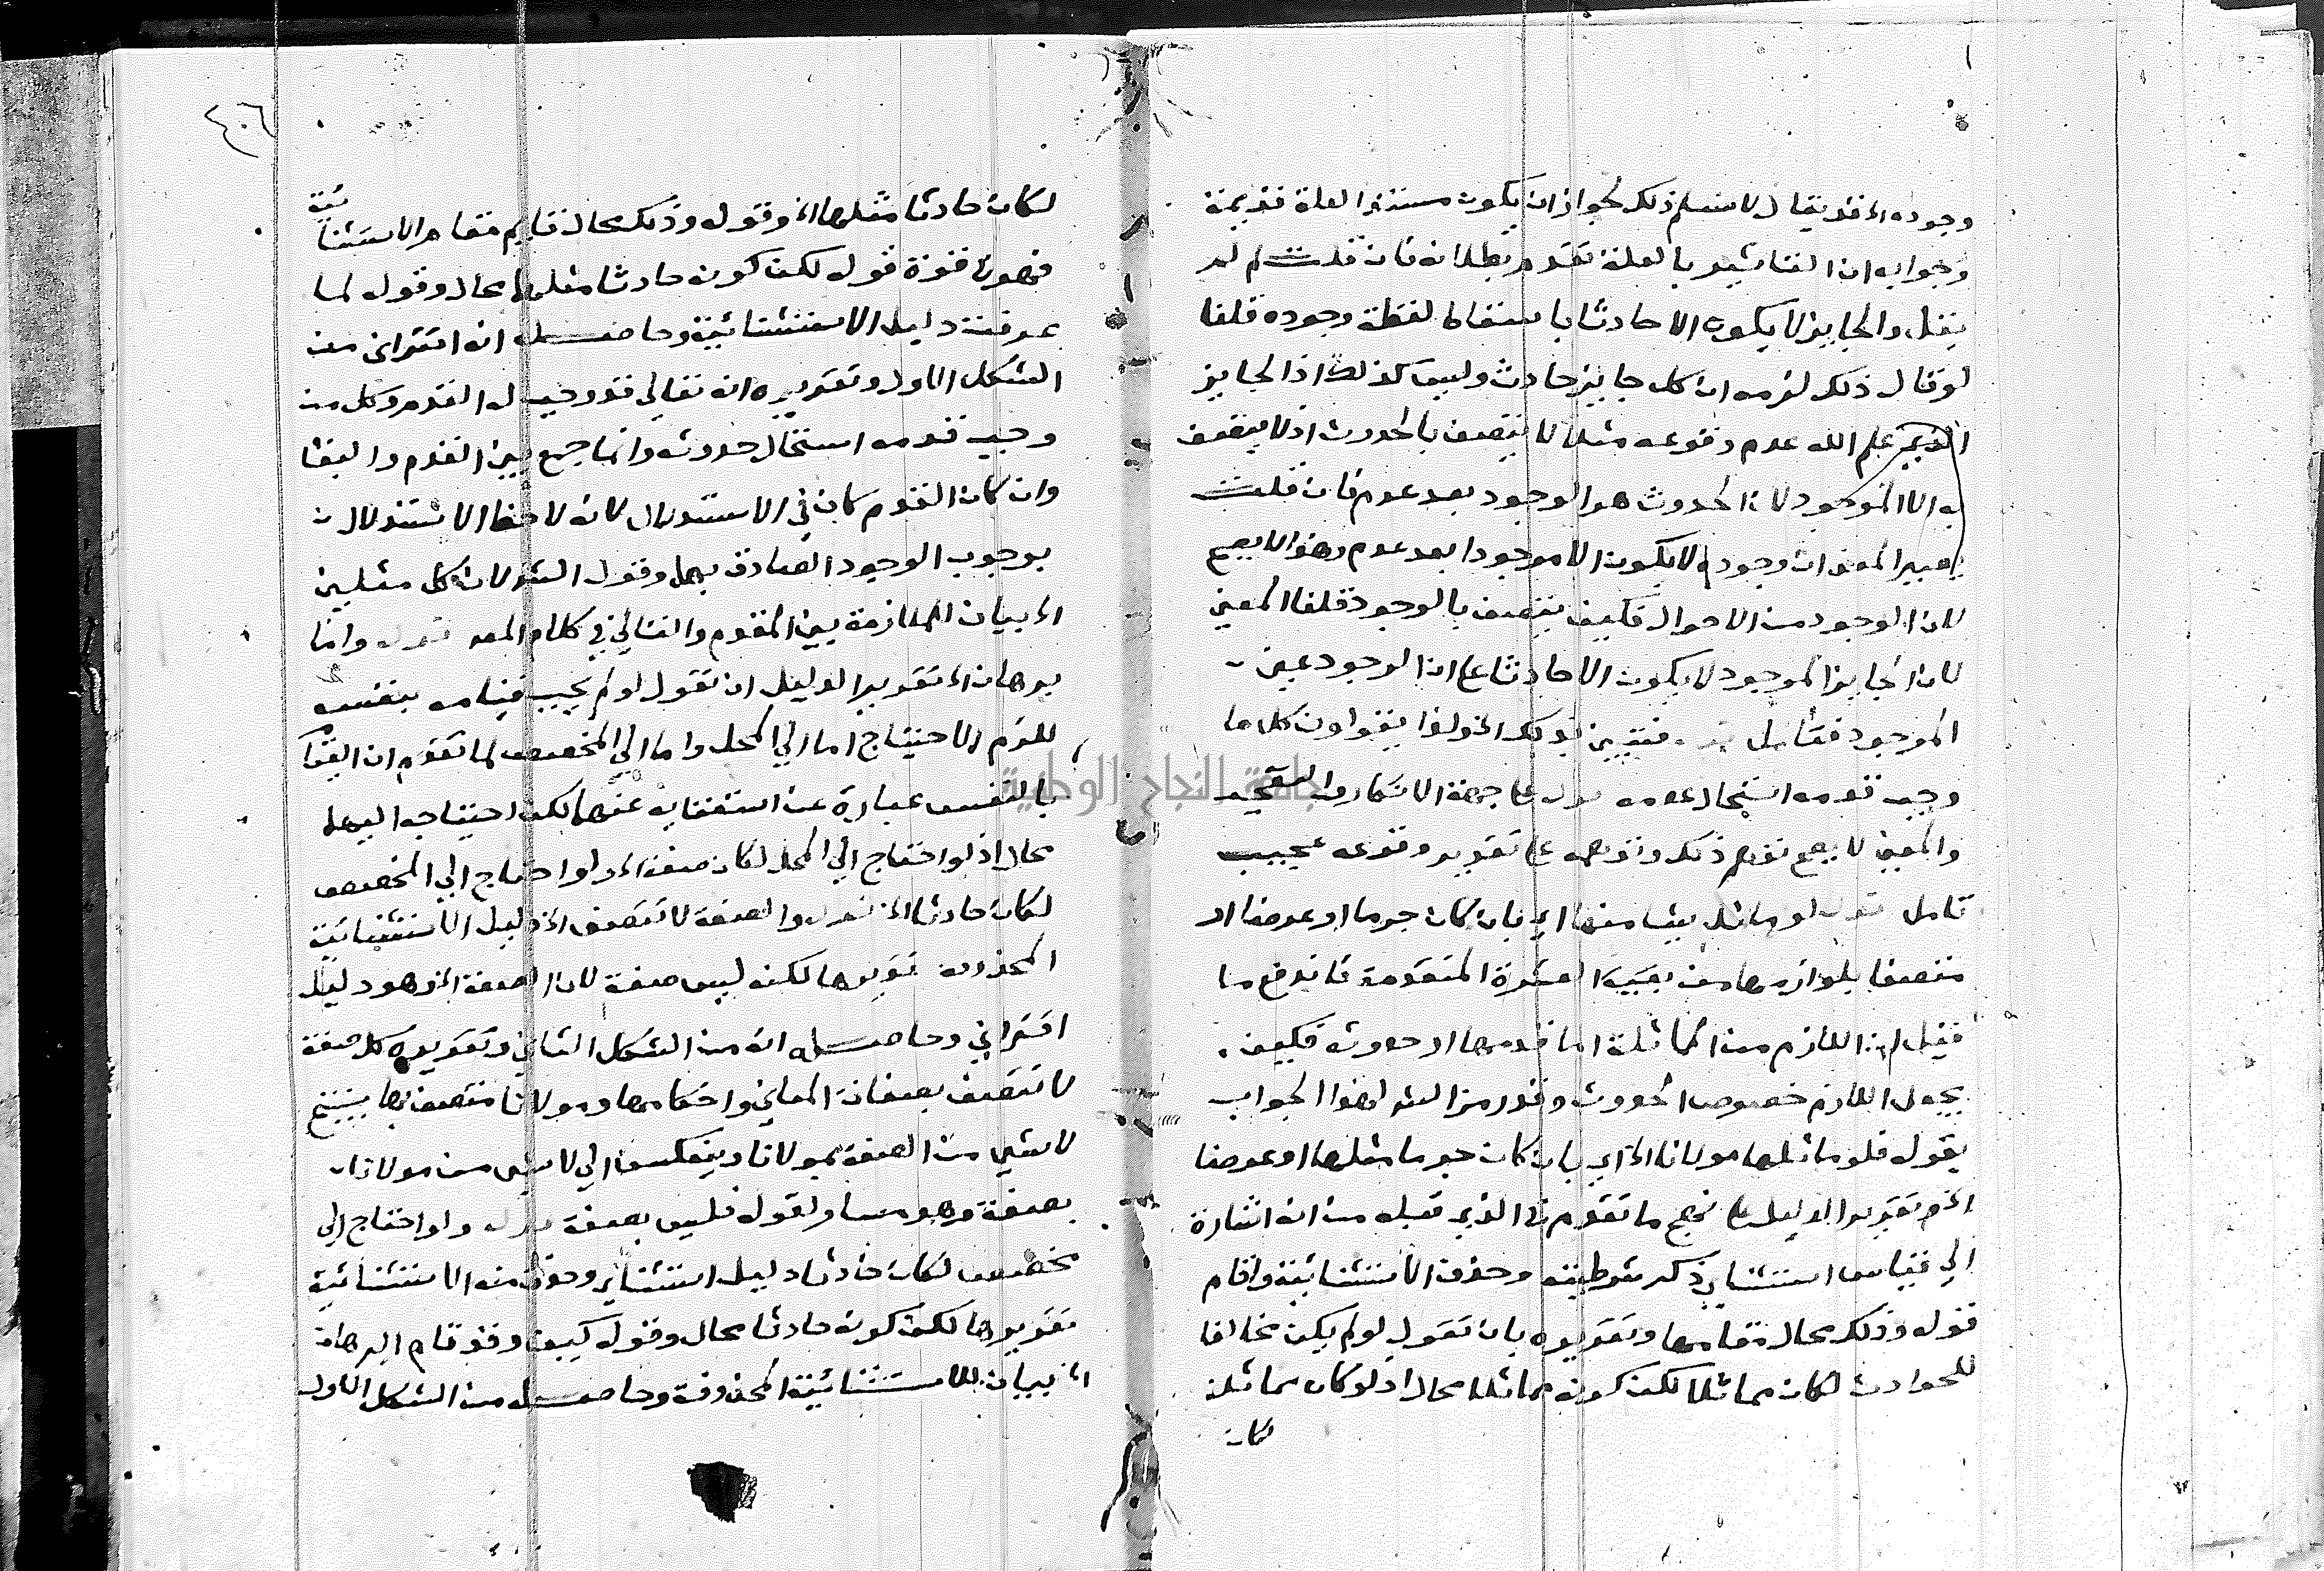 وجوده الخ قد يقال لا نسلم ذلك لجواز ان يكون مستندا لعلة قديمة
وجوابه ان التاثير بالعلة تقدم بطلانه فان قلت لم لم
يقل والجايز لا يكون الا حادثا باسقاط لفظة وجوده قلنا
لو قال ذلك لزمه ان كل جايز حادث وليس كذلك اذ الجايز
الذي علم الله عدم وقوعه مثلا لا يتصف بالحدوث اذ لا يتصف
به الا الموجود لان الحدوث هو الوجود بعد عدم فان قلت
يصير المعنى ان وجوده لا يكون الا موجودا بعد عدم وهذا لا يصح
لان الوجود من الاحوال فكيف يتصف بالوجود قلنا المعنى
لان الجايز الموجود لا يكون الا حادثا على ان الوجود عين
الموجود فتامل فتبين بذلك الخ ولذا يقولون كل ما
وجب قدمه استحال عدمه على جهة الانكار والتعجب
والمعنى لا يصح توهم ذلك وتوهمه على تقدير وقوعه عجيب
تامل قوله لو ماثل شيا منها اي بان كان جرما او عرضا او
متصفا بلوازمهما من بقية العشرة المتقدمة فاندفع ما
قيل ان اللازم من المماثلة اما قدمها او حدوثه فكيف
يجعل اللازم خصوص الحدوث وقد رمز الش لهذا الجواب
بقوله فلو ماثلها مولانا الخ اي بان كان جرما مثلها او عرضا
الخ تقرير الدليل على نحو ما تقدم في الذي قبله من انه اشارة
الى قياس استثنائي ذكر شرطيته وحذف الاستثنائية واقام
قوله وذلك محال مقامها وتقريره بان تقول لو لم يكن مخالفا
للحوادث لكان مماثلا لكن كونه مماثلا محال اذ لو كان مماثلا
لكان
٤٠٦
لكان حادثا مثلها الخ وقوله وذلك محال قايم مقام الاستثنائية
فهو في قوة قوله لكن كونه حادثا مثلها محال وقوله لما
عرفت دليل الاستثنائية وحاصله انه اقتراني من
الشكل الاول وتقريره انه تعالى قد وجب له القدم وكل من
وجب قدمه استحال حدوثه وانما جمع بين القدم والبقا
وان كان القدم كان في الاستدلال لانه لاحظ الاستدلال
بوجوب الوجود الصادق بهما وقول الش لان كل مثلين
الخ بيان الملازمة بين المقدم والتالي في كلام المص قوله واما
برهان الخ تقرير الدليل ان تقول لو لم يجب قيامه بنفسه
للزم الاحتياج اما الى المحل واما الى المخصص لما تقدم ان القيام
بالنفس عبارة عن استغنايه عنهما لكن احتياجه اليهما
محال اذ لو احتاج الى المحل لكان صفة الخ ولو احتاج الى المخصص
لكان حادثا الخ قوله والصفة لا تتصف الخ دليل الاستثنائية
المحذوفة تقريرها لكنه ليس صفة لان الصفة الخ وهو دليل
اقتراني وحاصله انه من الشكل الثاني وتقريره كل صفة
لا تتصف بصفات المعاني واحكامها ومولانا متصف بها ينتج
لا شي من الصفة بمولانا وينعكس الى لا شي من مولانا
بصفة وهو مساو لقوله فليس بصفة قوله ولو احتاج الى
مخصص لكان حادثا دليل استثنائي وحذف منه الاستثنائية
تقريرها لكن كونه حادثا محال وقوله كيف وقد قام البرهان
الخ بيان للاستثنائية المحذوفة وحاصله من الشكل الاول
جامعة النجاح الوطنية